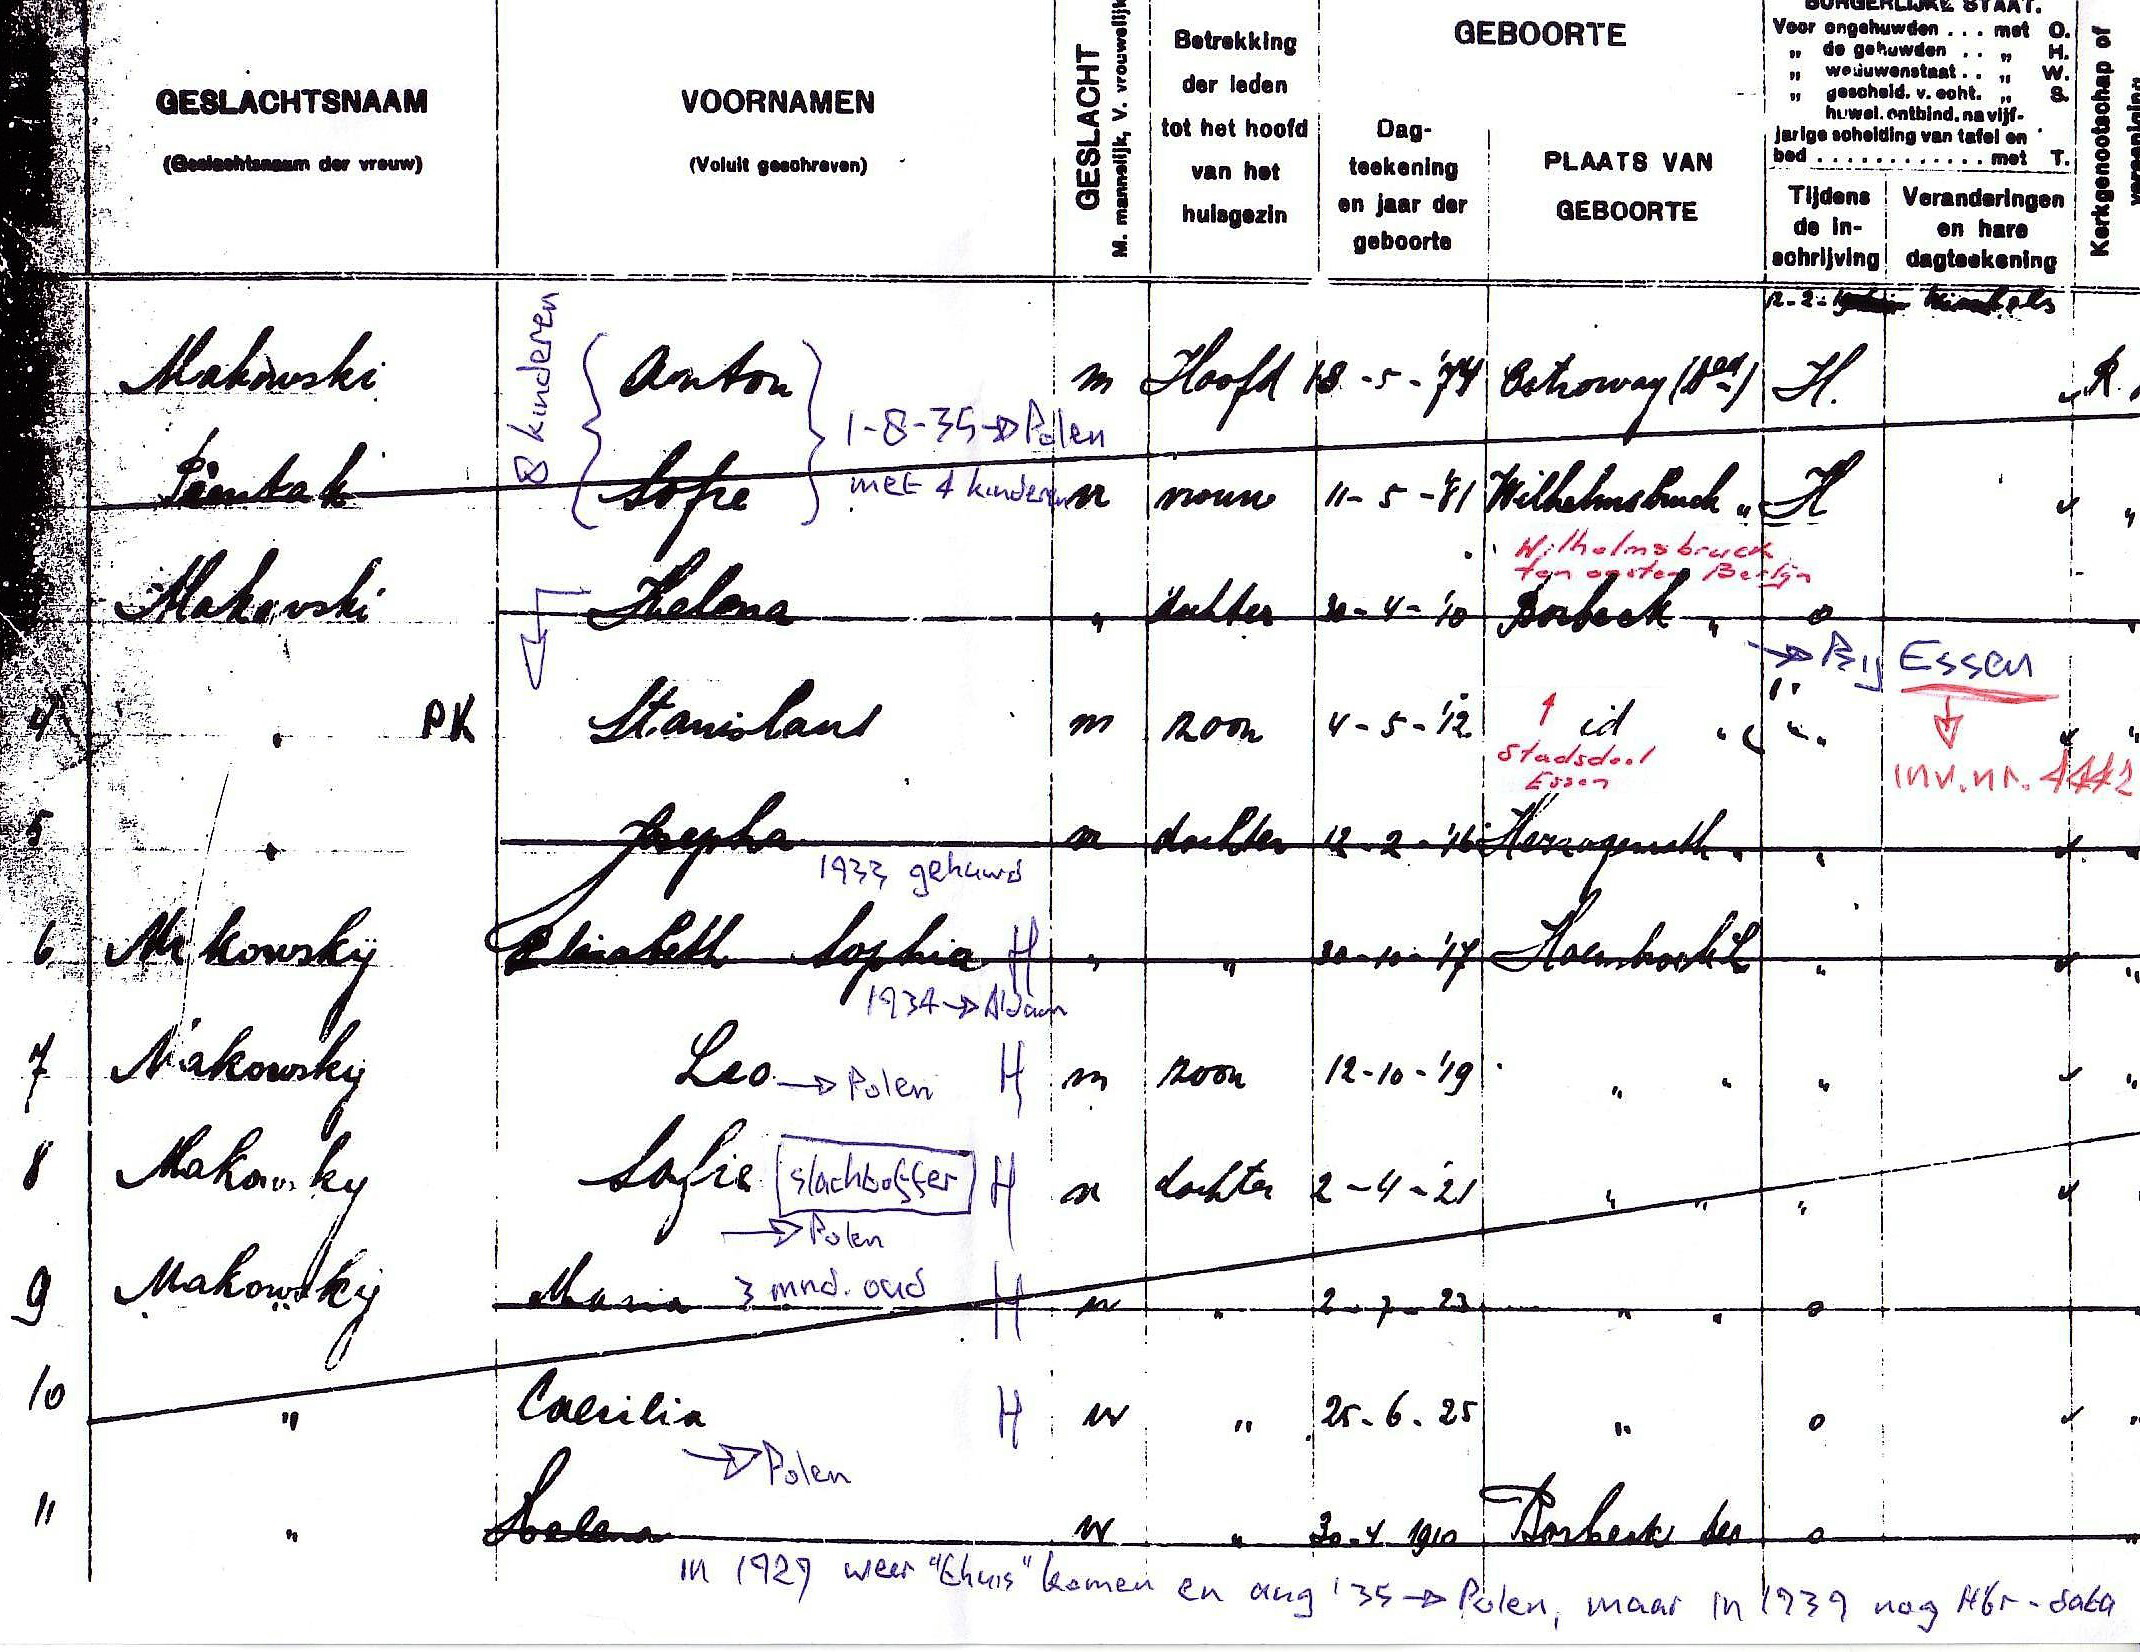 GESLACHTSNAAM
(Geslachtsnaam der vrouw)
VOORNAMEN
(Voluit geschreven)
GESLACHT
M. mannelijk, V. vrouwelijk
Betrekking
der leden
tot het hoofd
van het
huisgezin
GEBOORTE
Dag-
teekening
en jaar der
geboorte
PLAATS VAN
GEBOORTE
BURGERLIJKE STAAT.
Voor ongehuwden ... met O.
„ de gehuwden .. „ H.
„ weduwenstaat .. „ W.
„ gescheid. v. echt. „ S.
huwel. ontbind. na vijf-
jarige scheiding van tafel en
bed ............ met T.
Tijdens
de in-
schrijving
Veranderingen
en hare
dagteekening
Kerkgenootschap of
8 kinderen
Makowski Anton m Hoofd 18-5-'74 H. R.
1-8-35 → Polen
Pientak Sofie vrouw 11-5-'81 Wilhelmsbruck „ H „
met 4 kinderen
Wilhelmsbruck
ten oosten Berlijn
Makowski Helena „ dochter 30-4-'10 Borbeck „ o „
→ Bij Essen
4 „ PK Stanislaus m zoon 4-5-'12 id „ „
↑ Stadsdeel
Essen
inv.nr. 4442
5 „ Josepha dochter 12-2-'16 Herzogenrath „ „
1933 gehuwd
6 Makowsky Elisabeth Sophia H „ „ 30-10-'17 „ „
1934 →
7 Makowsky Leo → Polen H m zoon 12-10-'19 „ „ „ „
8 Makowsky Sofie slachtoffer H dochter 2-4-21 „ „ „
→ Polen
9 Makowsky Maria 3 mnd. oud H „ 2-7-23 „ „ o
10 „ Caecilia H „ 25-6-25 „ o „
→ Polen
11 „ Helena „ 30-4 1910 Borbeck o „
in 1929 weer "thuis" komen en aug '35 → Polen, maar in 1939 nog Hbr-data